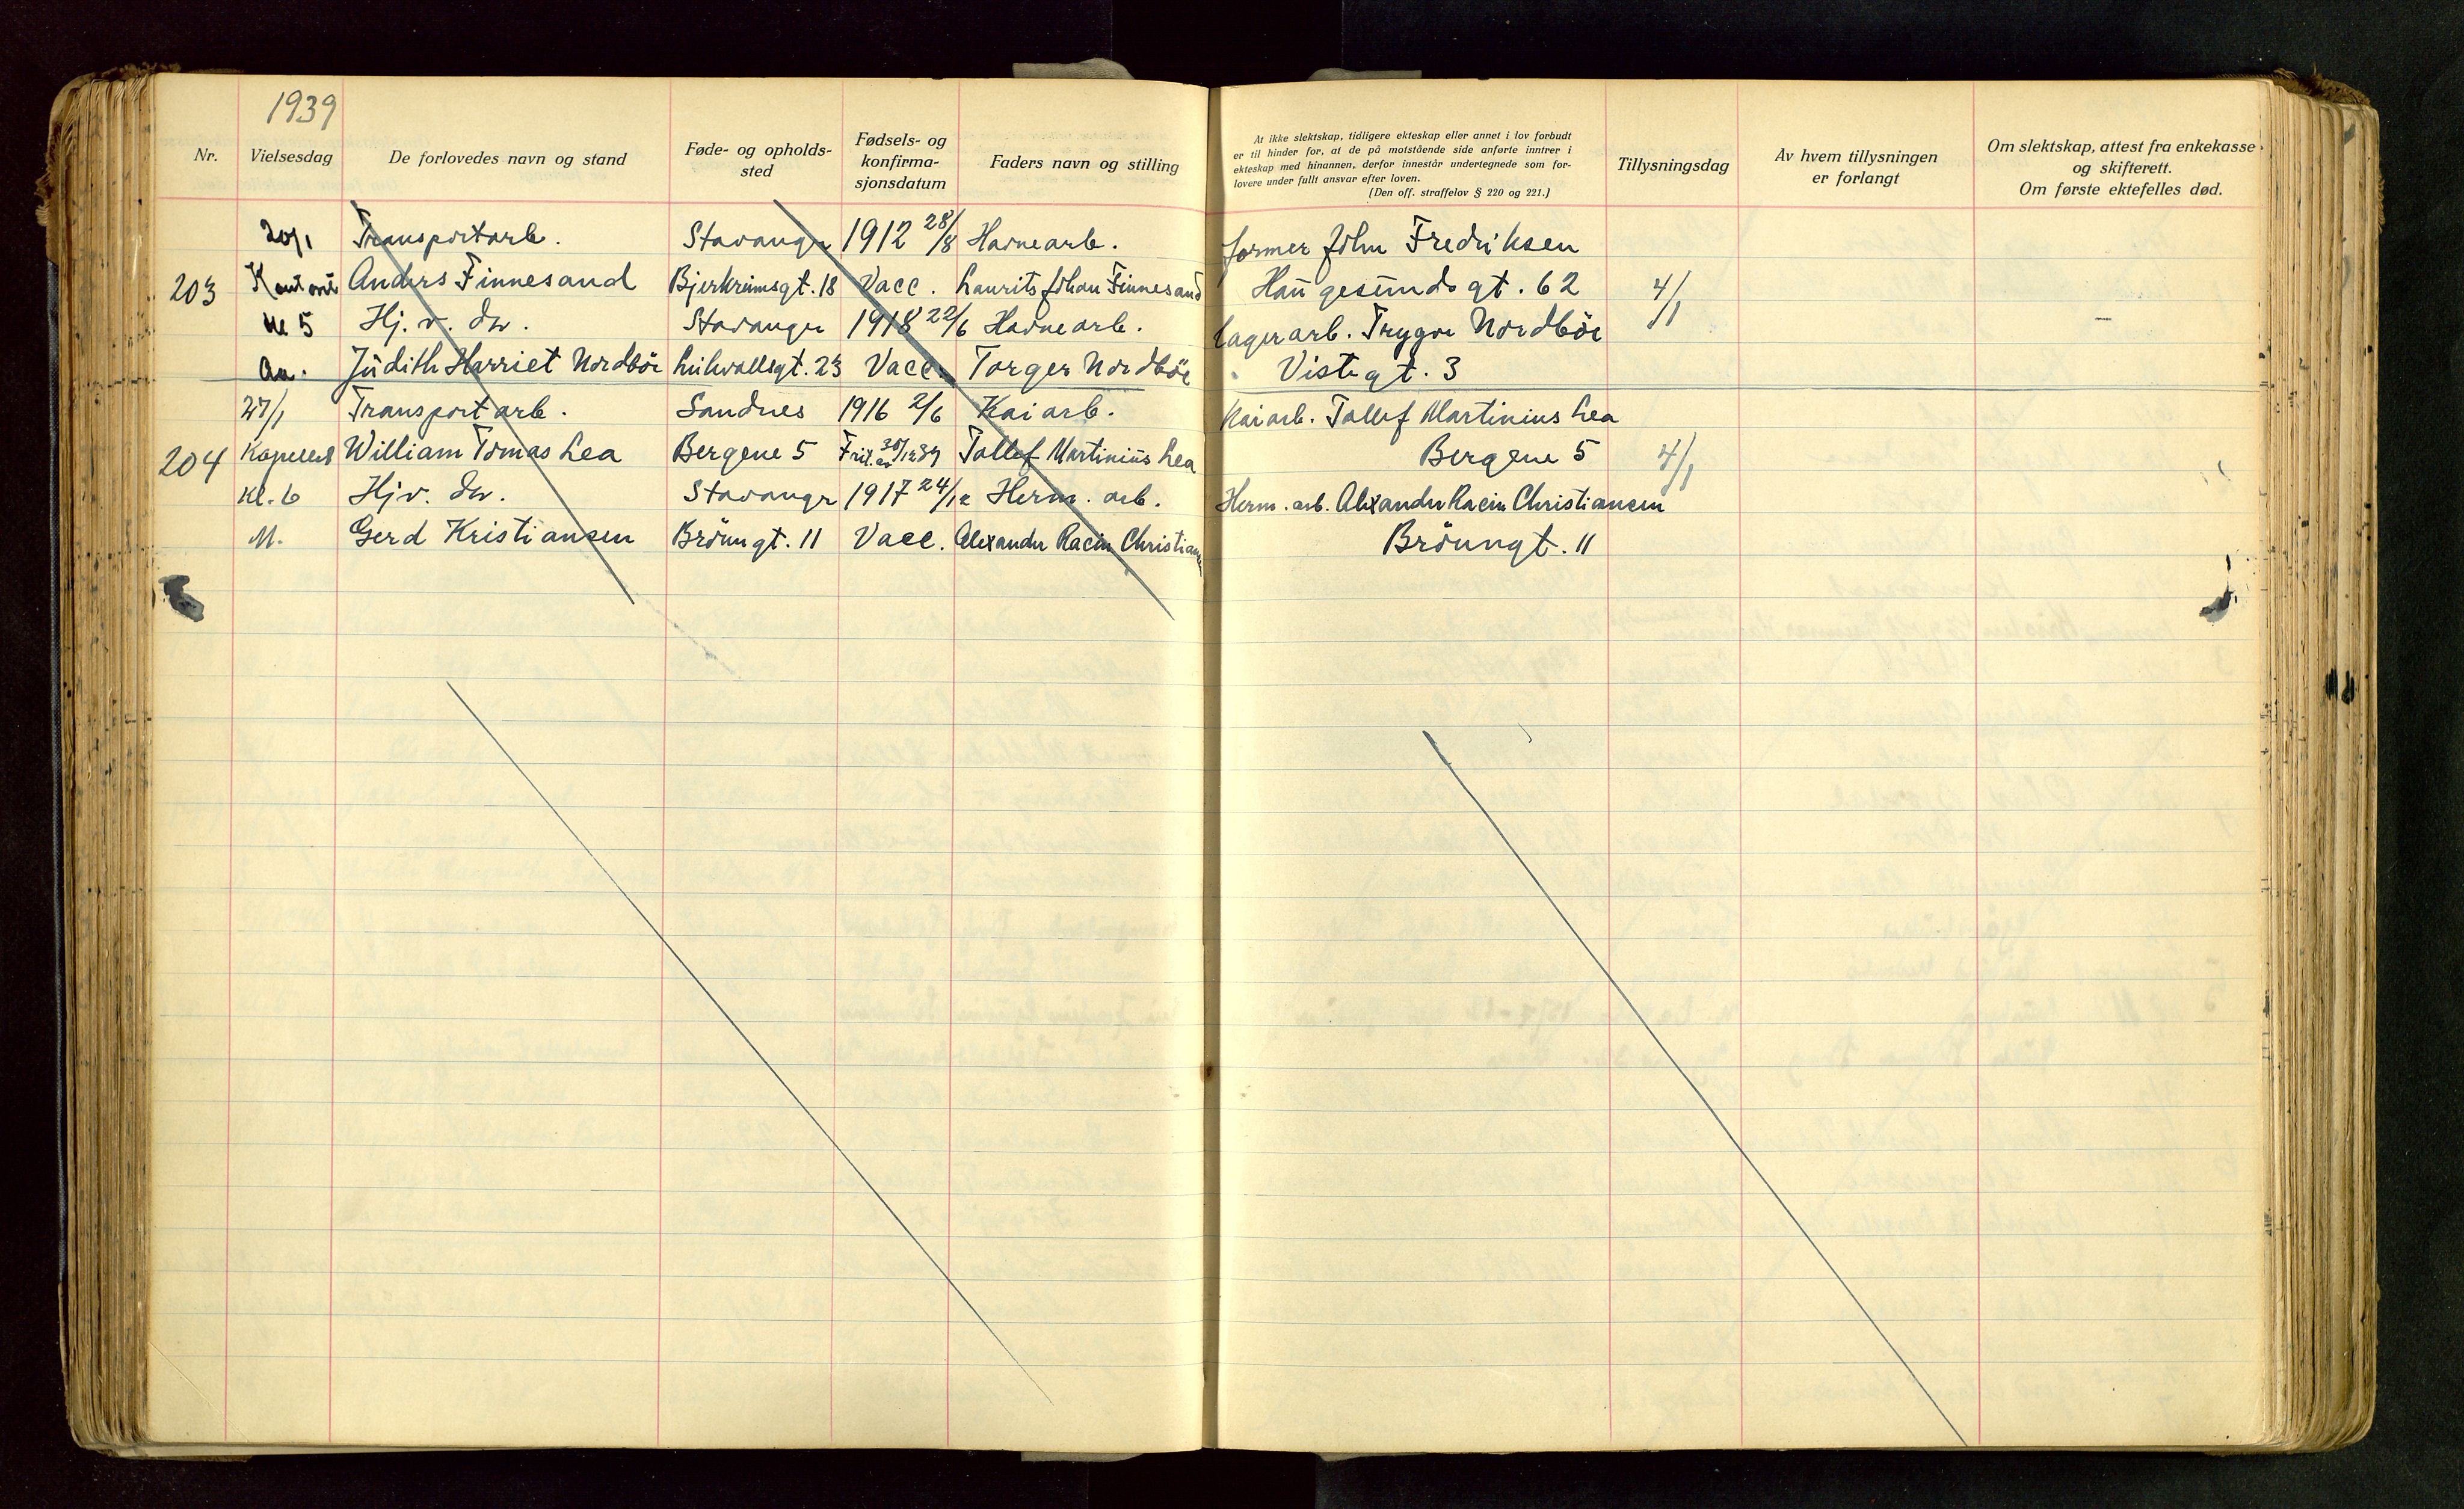 1939
Nr.
Vielsesdag
De forlovedes navn og stand
Føde- og opholds-
sted
Fødsels- og
konfirma-
sjonsdatum
Faders navn og stilling
At ikke slektskap, tidligere ekteskap eller annet i lov forbudt
er til hinder for, at de på motstående side anførte inntrer i
ekteskap med hinannen, derfor innestår undertegnede som for-
lovere under fullt ansvar efter loven.
(Den off. straffelov § 220 og 221.)
Tillysningsdag
Av hvem tillysningen
er forlangt
Om slektskap, attest fra enkekasse
og skifterett.
Om første ektefelles død.
20/1 Transportarb. Stavanger 1912 28/8 Havnearb. former John Fredriksen
203 Anders Finnesand Bjerkreimsgt. 18 Vacc. Laurits Johan Finnesand Haugesundsgt. 62 4/1
kl 5 Hj. v. dr. Stavanger 1918 22/6 Havnearb. Lagerarb. Trygve Nordbö —
An. Judith Harriet Nordbö 23 Vacc. Torger Nordbö Vistegt. 3
27/1 Transportarb. Sandnes 1916 2/6 Kaiarb. Kaiarb. Tollef Martinius Lea
204 Kapellet William Tomas Lea Bergene 5 Tollef Martinius Lea Bergene 5 4/1
Kl. 6 Hjv. dr. Stavanger 1917 24/12 Herm. arb. Herm. arb. Alexander Racin Christiansen
M. Gerd Kristiansen Bröungt. 11 Vacc. Alexander Racin Christiansen Bröungt. 11